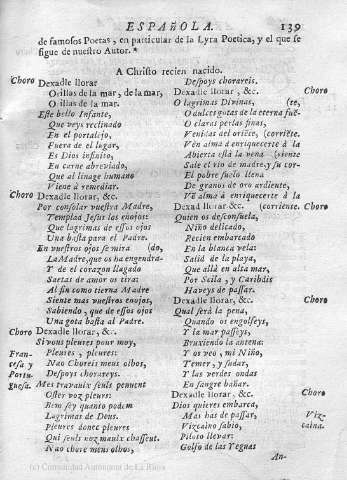 ESPAÑOLA. 139
de famosos Poetas, en particular de la Lyra Poetica, y el que se
sigue de nuestro Autor. *
A Christo recien nacido.
Choro Dexadle llorar
Orillas de la mar, de la mar,
Orillas de la mar.
Este bello Infante,
Que veys reclinado
En el portalejo,
Fuera de el lugar,
Es Dios infinito,
En carne abreviado,
Que al linage humano
Viene à remediar.
Choro Dexadle llorar, &c.
Por consolar vuestra Madre,
Templad Jesus los enojos:
Que lagrimas de essos ojos
Una basta para el Padre.
En vuestros ojos se mira (do,
La Madre, que os ha engendra-
Y de el corazon llagado
Saetas de amor os tira:
Al fin como tierna Madre
Siente mas vuestros enojos,
Sabiendo, que de essos ojos
Una gota basta al Padre.
Choro Dexadle llorar, &c.
Si vous pleures pour moy,
Fran- Pleures, pleures:
cesa y Nao Choreis meus olhos,
Portu- Despoys chorareys.
guesa. Mes travaulx seuls peuuent
Oster voz pleurs:
Bem sey quanto podem
Lagrimas de Deus.
Pleures donc pleures
Qui seuls voz maulx chassent.
Nao chore meus olhos,
Despoys chorareis.
Dexadle llorar, &c. Choro
O lagrimas Divinas, (te,
O dulces gotas de la eterna fuē-
O claras perlas finas,
Venidas del oriēte, (corriēte.
Vēn alma à enriquecerte à la
Abierta està la vena (siente
Sale el rio de madre, y su cor-
El pobre suelo llena
De granos de oro ardiente,
Vē alma à enriquecerte à la
Dexadle llorar, &c. (corriente. Choro
Quien os desconsuela,
Niño delicado,
Recien embarcado
En la blanca vela:
Salid de la playa,
Que allà en alta mar,
Por Scila, y Caribdis
Haveys de passar.
Dexadle llorar, &c. Choro
Qual serà la pena,
Quando os engolfeys,
Y la mar passeys,
Bruxiendo la antena:
Y os veo, mi Niño,
Temer, y sudar,
Y las verdes ondas
En sangre bañar.
Dexadle llorar, &c. Choro
Dios quieres embarca,
Mas has de passar, Viz-
Vizcaino sabio, caina.
Piloto llevar:
Golfo de las Yeguas
An-
(c) Comunidad Autónoma de La Rioja